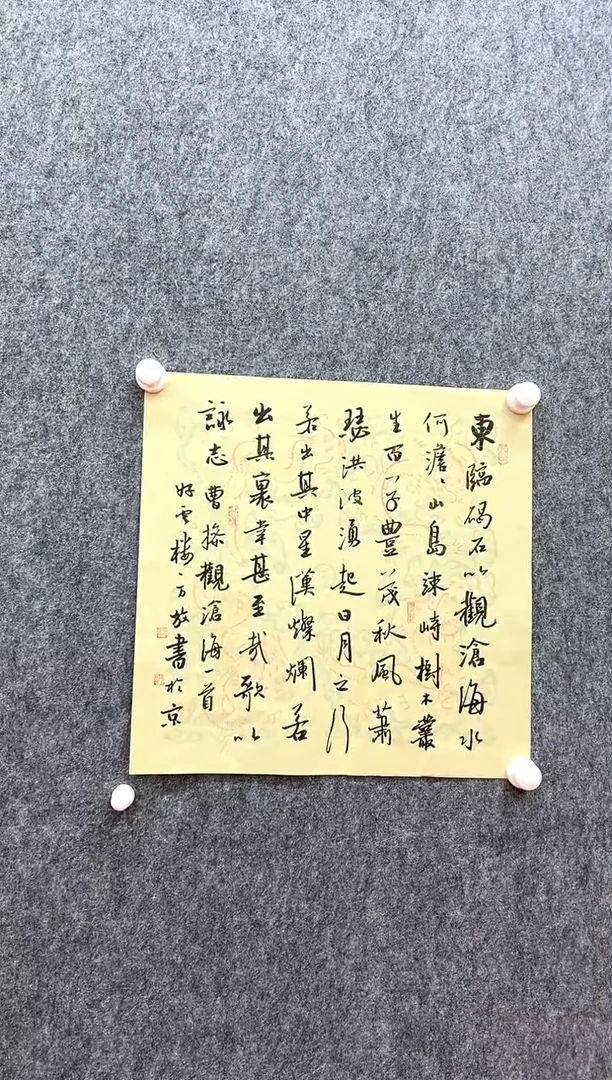 東臨碣石以觀滄海水
何澹〻山島竦峙樹木叢
生百草豐茂秋風蕭
瑟洪波湧起日月之行
若出其中星漢燦爛若
出其裏幸甚至哉歌以
詠志曹操觀滄海一首
好雲樓方放書於京